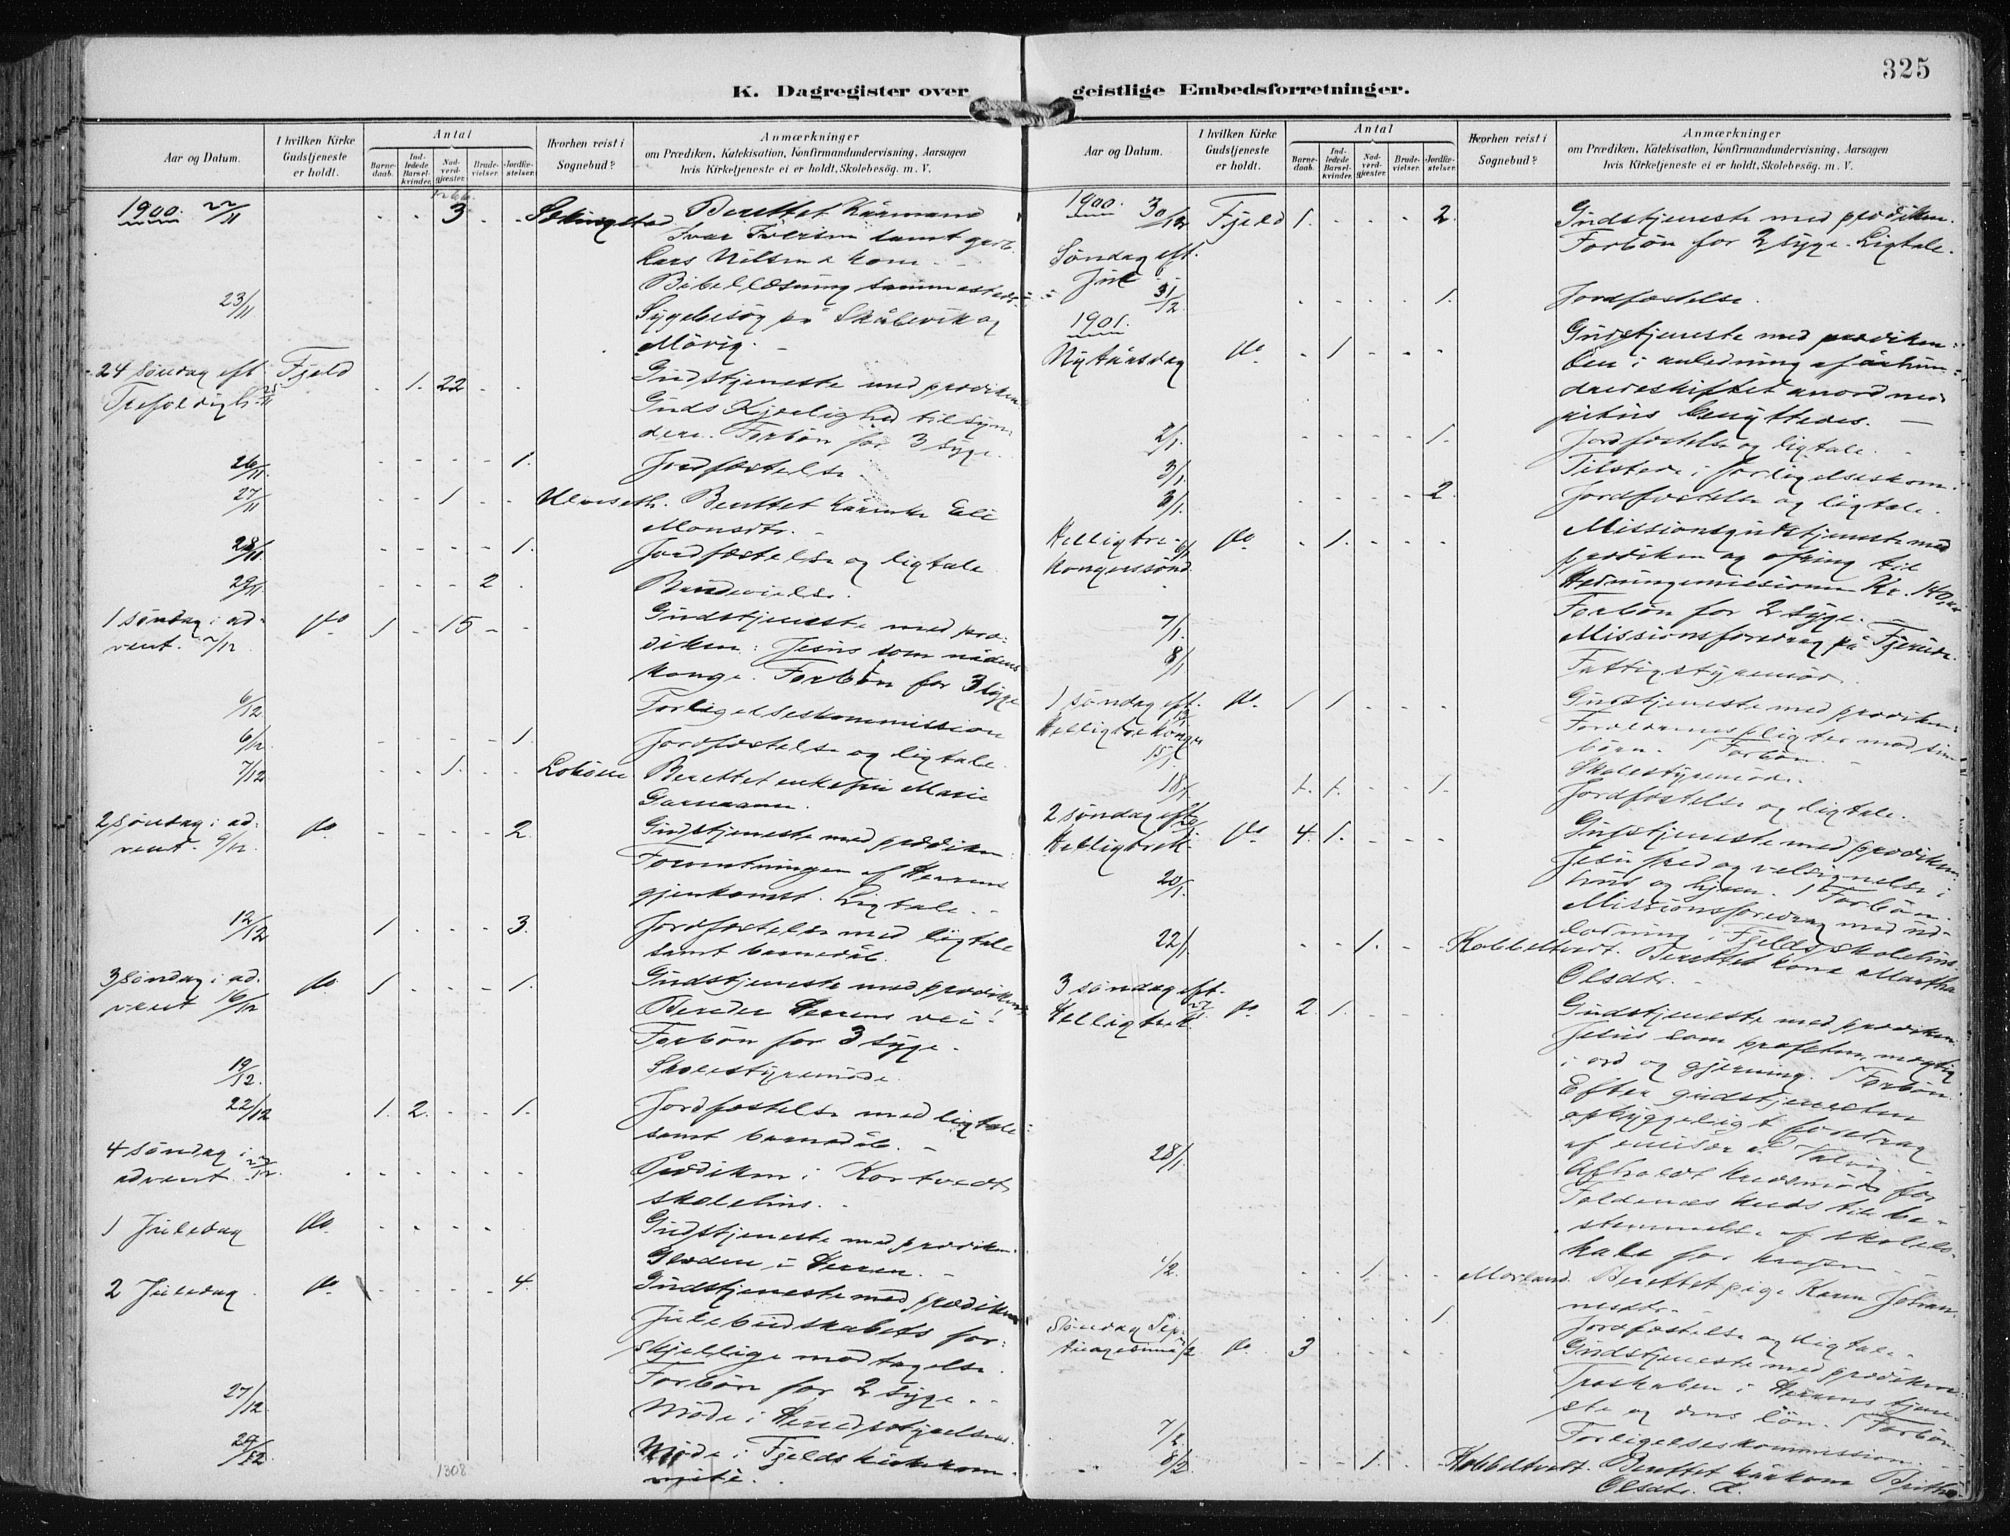 325
K. Dagregister over geistlige Embedsforretninger.
Aar og Datum.
I hvilken Kirke Gudstjeneste er holdt.
Antal
Barnedaab.
Indledede Barselkvinder.
Nadverdgjæster.
Brudevielser.
Jordfæstelser.
Hvorhen reist i Sognebud?
Anmærkninger
om Prædiken, Katekisation, Konfirmandundervisning, Aarsagen
hvis Kirketjeneste ei er holdt, Skolebesög. m. V.
1900. 22/11 - - 3 - - Berettet Kårmand
Ivar Iversen samt gårb.
Lars Nilsen & kone. -
Bibellæsning sammesteds
23/11 Sygebesøg på Skålevik og
Mövig. -
24 søndag eft. Fjeld - 1. 22 - - Gudstjeneste med prædiken
Trefoldigh. 25/11 Guds Kjærlighed til syn-
dere. Forbøn for 3 syge.
26/11 - - - - 1. Jordfæstelse.
27/11 - - 1 - - Ulveseth. Berettet Kårenke Eli
Monsdtr. -
28/11 - - - - 1. Jordfæstelse og ligtale
29/11 - - - 2 Brudevielse.
1 søndag i ad- do 1 - 15 - - Gudstjeneste med præ-
vent. 2/12 diken: Jesus som nådens
konge. Forbøn for 3 syge
6/12 Forligelseskommission
6/12 - - - - 1. Jordfæstelse og ligtale.
7/12 - - 1. - - Berettet enkefru Marie
2 søndag i ad- do. - - - - 2. Gudstjeneste med prædiken:
vent. 9/12 Forventningen af Herrens
gjenkomst. Ligtale. -
12/12 1 - - - 3. Jordfæstelse med ligtale
samt barnedåb.
3 søndag i ad- do. 1 - - - 1. Gudstjeneste med prædiken:
vent 16/12 Bereder Herrens vei!
Forbøn for 3 syge.
19/12. Skolestyremøde.
22/12 1. 2. - - 1. Jordfæstelse med ligtale
samt barnedåb. -
4 søndag i - - - - - Prædiken i Kortvedt
advent 23/12. skolehus. -
1 Juledag do. - - - - - Gudstjeneste med prædiken:
Glæden i Herren. -
2 Juledag do. - - - 4. Gudstjeneste med prædiken
Julebudskabets for-
skjellige modtagelse.
Forbøn for 2 syge. -
27/12. Møde i Herredsstyrelsen.
29/12 Møde i Fjelds kirkekom-
1308
Aar og Datum.
I hvilken Kirke Gudstjeneste er holdt.
Antal
Barnedaab.
Indledede Barselkvinder.
Nadverdgjæster.
Brudevielser.
Jordfæstelser.
Hvorhen reist i Sognebud?
Anmærkninger
om Prædiken, Katekisation, Konfirmandundervisning, Aarsagen
hvis Kirketjeneste ei er holdt, Skolebesög. m. V.
1900. 30/12 Fjeld 1. - - - 2. Gudstjeneste med prædiken.
Søndag eft. Forbøn for 2 syge. Ligtale.
Jul -
31/12 - - - - 1. Jordfæstelse.
1901. Gudstjeneste med prædiken
Nytårsdag do - 1 - - - Den i anledning af århun-
dredeskiftet anordnede
benyttedes. -
2/1. - - - - 1. Jordfæstelse og ligtale. -
3/1. Tilstede i forligelseskom.
3/1 - - - - 2. Jordfæstelse og ligtale.
Helligtre- 6/1 do. - 1. - - - Missionsgudstjeneste med
kongersønd. prædiken og ofring til
Hedningemissionen Kr. 140
Forbøn for 2 syge. -
7/1. Missionsforedrag på
8/1 Fattigstyremøde.
1 søndag eft. do. 1 1 - - - Gudstjeneste med prædiken:
Helligtrekonger Forældrenes pligter mod sine
børn. 1 Forbøn. -
15/1. Skolestyremøde.
18/1 1. 1. - - 1. Jordfæstelse og ligtale.
2 søndag eft. 20/1
Helligtrek do. 4. 1. - - - Gudstjeneste med prædiken:
Jesu fred og velsignelse i
hus og hjem. 1 Forbøn.
20/1. Missionsforedrag med ud-
lodning i Fjelds skolehus
22/1 - - 1. - - Kobbeltvedt. Berettet kone Martha
Olsdtr. -
3 søndag eft. 27/1
Helligtrek. do. 2. 1. - - - Gudstjeneste med prædiken:
Jesus som profeten, mægtig
i ord og gjerning. 1 Forbøn.
Efter gudstjenesten
opbyggeligt foredrag
28/1. Afholdt kredsmøde for
Foldenæs kreds til be-
stemmelse af skolelo-
kale for kredsen. -
1/2. - - 1. - - Morland. Berettet pige Karen Johan-
nesdtr. -
- - - - 1 Jordfæstelse og ligtale.
Søndag Sep- do. 3 - - - - Gudstjeneste med prædiken:
tuagesima 3/2 Troskaben i Herrens tjene-
ste og dens løn. 1 Forbøn.
7/2 Forligelseskommission. -
8/2. - - 1. - - Kobbeltvedt. Berettet kårkone Brithe
Olsdtr.